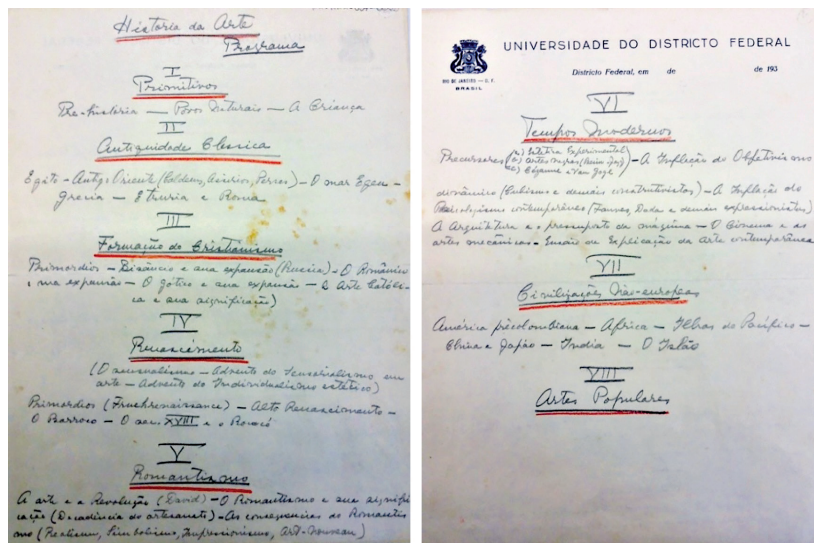 Historia da Arte
Programa
I
Primitivos
Pre-historia — Povos Naturais — A Criança
II
Antiguidade Classica
Egito - Antigo Oriente (Caldeus, Assirios, Persas) - O mar Egeu -
Grecia — Etruria e Roma
III
Formação do Cristianismo
Primordios - Bizâncio e sua expansão (Russia) - O Românico
e sua expansão - O gotico e sua expansão - A Arte Católi-
ca e sua significação)
IV
Renascimento
(O racionalismo - Advento do Sensorialismo em
arte - Advento do Individualismo estético)
Primordios (Fruehrenaissance) - Alto Renascimento -
O Barroco - O sec. XVIII e o Rococó
V
Romantismo
A arte e a Revolução (David) - O Romantismo e sua signifi-
cação (Decadência do artesanato) - As consequencias do Romantis
mo (Realismo, Simbolismo, Impressionismo, Art-Nouveau)
UNIVERSIDADE DO DISTRICTO FEDERAL
RIO DE JANEIRO — D. F.
BRASIL
Districto Federal, em de de 193
VI
Tempos Modernos
a) Estetica Experimental
Precursores b) Artes Negras - A Inflação do Objetivismo
c) Cézanne e Van Gogh
dinâmico (Cubismo e demais construtivistas) - A Inflação do
Psicologismo contemporâneo (Fauves, Dada e demais expressionistas)
A Arquitetura e o presuposto da máquina - O Cinema e as
artes mecânicas - Ensaio de Explicação da Arte contemporânea
VII
Civilizações Não-européas
América précolombiana - Africa - Ilhas do Pacífico -
China e Japão - India - O Islão
VIII
Artes Populares